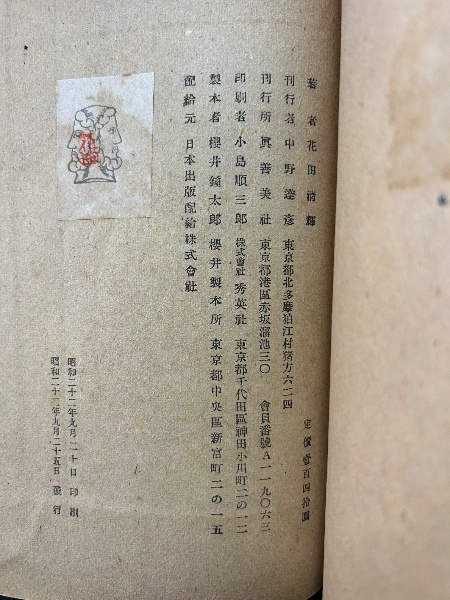 著者 花田清輝
刊行者 中野達彦 東京都北多摩狛江村猪方六二四
刊行所 眞善美社 東京都港區赤坂溜池三〇 會員番號A一一九〇六三
印刷者 小島順三郎 株式會社秀英社 東京都千代田區神田小川町二の一二
製本者 櫻井鐘太郎 櫻井製本所 東京都中央區新富町二の一五
配給元 日本出版配給株式會社
定價壹百四拾圓
昭和二十二年九月二十日 印刷
昭和二十二年九月二十五日 發行